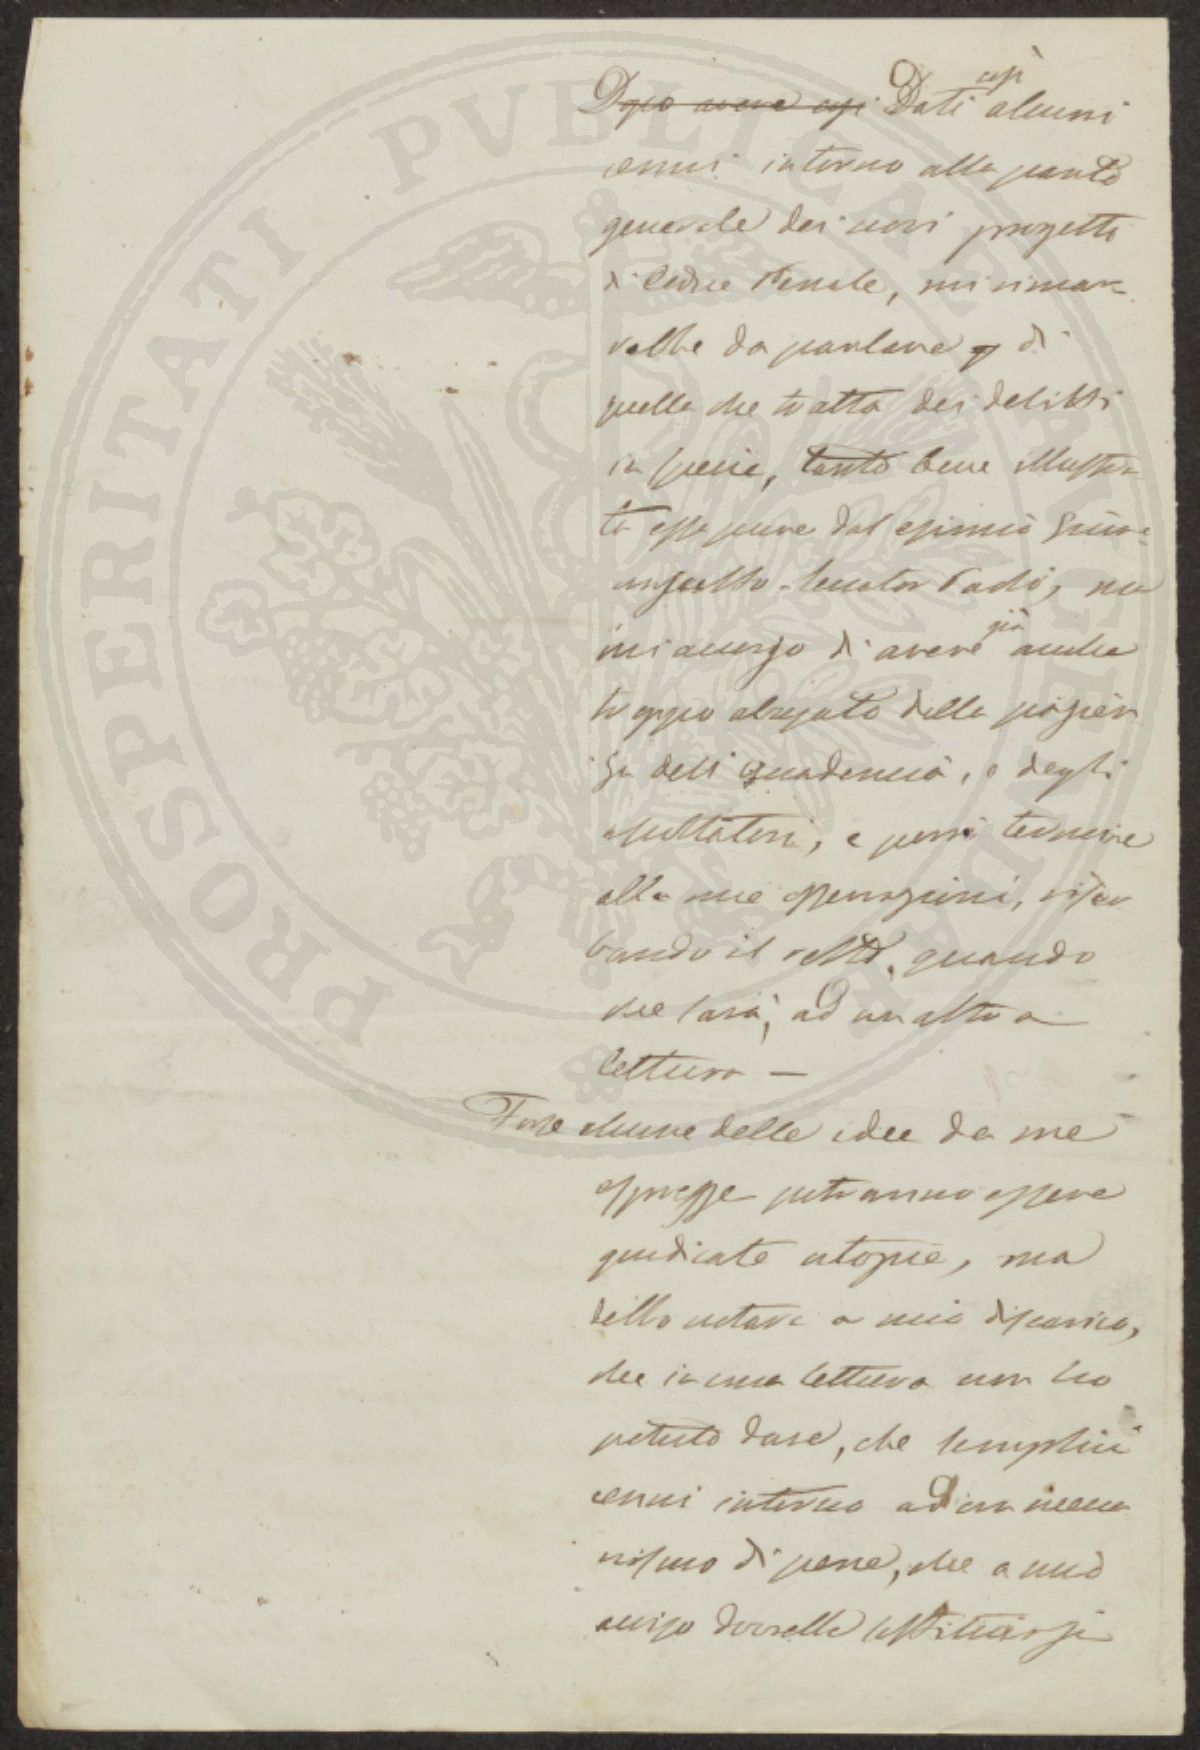 Dopo avere così Dati così alcuni
cenni intorno alla parte
generale dei vari progetti
di Codice Penale, mi rimar=
rebbe da parlare di
quella che tratta dei delitti
in specie, tanto bene illustra
ta essa pure dal esimio Giure=
consulto Senator Paoli, ma
mi accorgo di avere già anche
troppo abusato della pazien
za dell'Accademia, e degli
ascoltatori, e perciò termine
alle mie osservazioni, riser
bando il resto, quando
che sarà, ad un altra
lettura —
Forse alcune delle idee da me
espresse potranno essere
giudicate utopie, ma
debbo notare a mio discarico,
che in una lettura non ho
potuto dare, che semplici
cenni intorno ad un mecca
nismo di pene, che a mio
avviso dovrebbe sostituirsi
PROSPERITATI PUBLICAE AUGENDAE